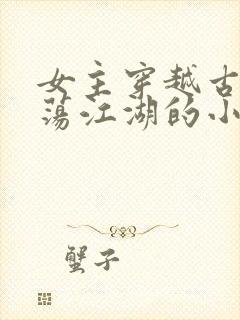 女主穿越古
荡江湖的小
蟹子